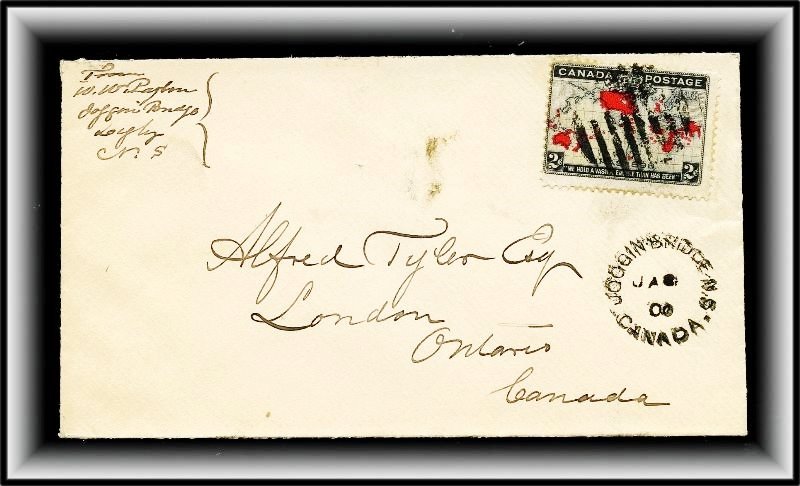 From
W. W.
Joggin Bridge
Digby
N. S
CANADA POSTAGE
2c 2c
"WE HOLD A VASTER EMPIRE THAN HAS BEEN"
Alfred Tyler Esq
London
Ontario
Canada
JOGGIN BRIDGE N.S.
JA 8
00
CANADA.